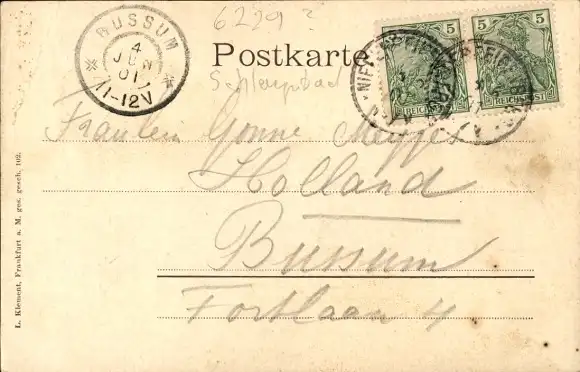 6229 ?
BUSSUM
4
JUN
01
11-12V
Postkarte
5
5
REICHSPOST
Schlangenbad
Fräulein Gonne Meyjes
Holland
Bussum
Fortlaan 4
L. Klement, Frankfurt a. M. ges. gesch. 102.